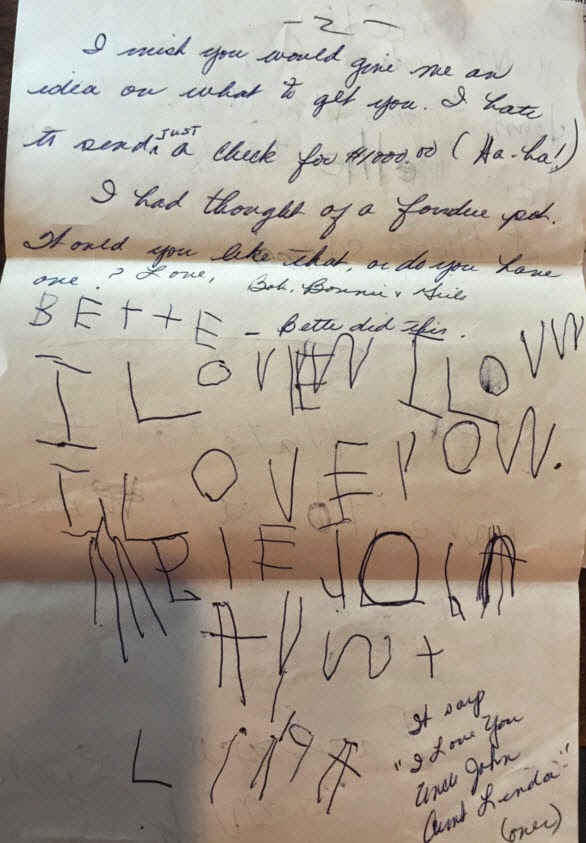 - 2 -
I wish you would give me an
idea on what to get you. I hate
to send JUST a check for $1000.00 (Ha-ha!)
I had thought of a fondue pot.
Would you like that, or do you have
one? Love, Bob, Bonnie &
BETTE - Bette did this.
I LOVE I LOVW
I LOVE YOW.
AYNT
LINDA
It says
"I Love You
Uncle John
Aunt Linda"
(over)